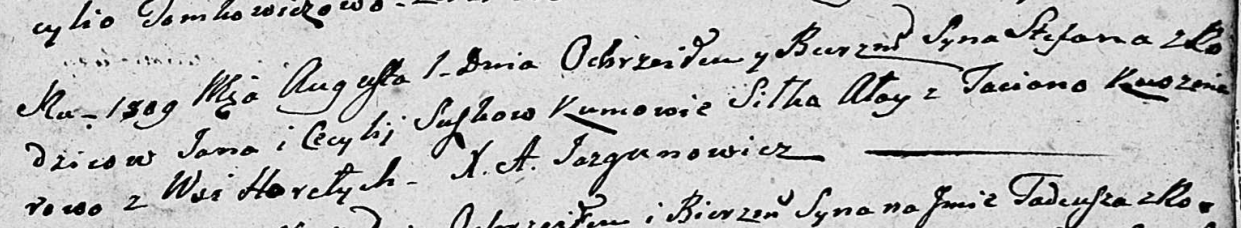 cylio Tomkowiczowo
Ru 1809 Mja Augusta 1 Dnia Ochrzciłem y Bierzm Syna Stefana z Ro
dzicow Jana i Cecylij Suszkow Kumowie Silka Ałay z Taciano Kuozenie
rowo z Wsi Horełych X. A. Jazgunowicz
Ochrzciłem i Bierzm Syna na Jmie Tadeusza z Ro